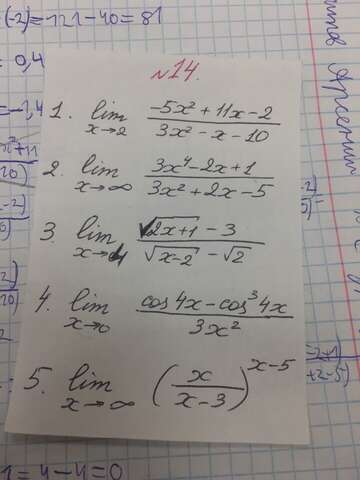 (-2)=121-40=81
= 0,4
№14.
1. lim x→2 (-5x² + 11x - 2)/(3x² - x - 10)
2. lim x→∞ (3x⁴ - 2x + 1)/(3x² + 2x - 5)
3. lim x→4 (√(2x+1) - 3)/(√(x-2) - √2)
4. lim x→0 (cos 4x - cos³ 4x)/(3x²)
5. lim x→∞ (x/(x-3))^(x-5)
= 4-4=0
Арсений